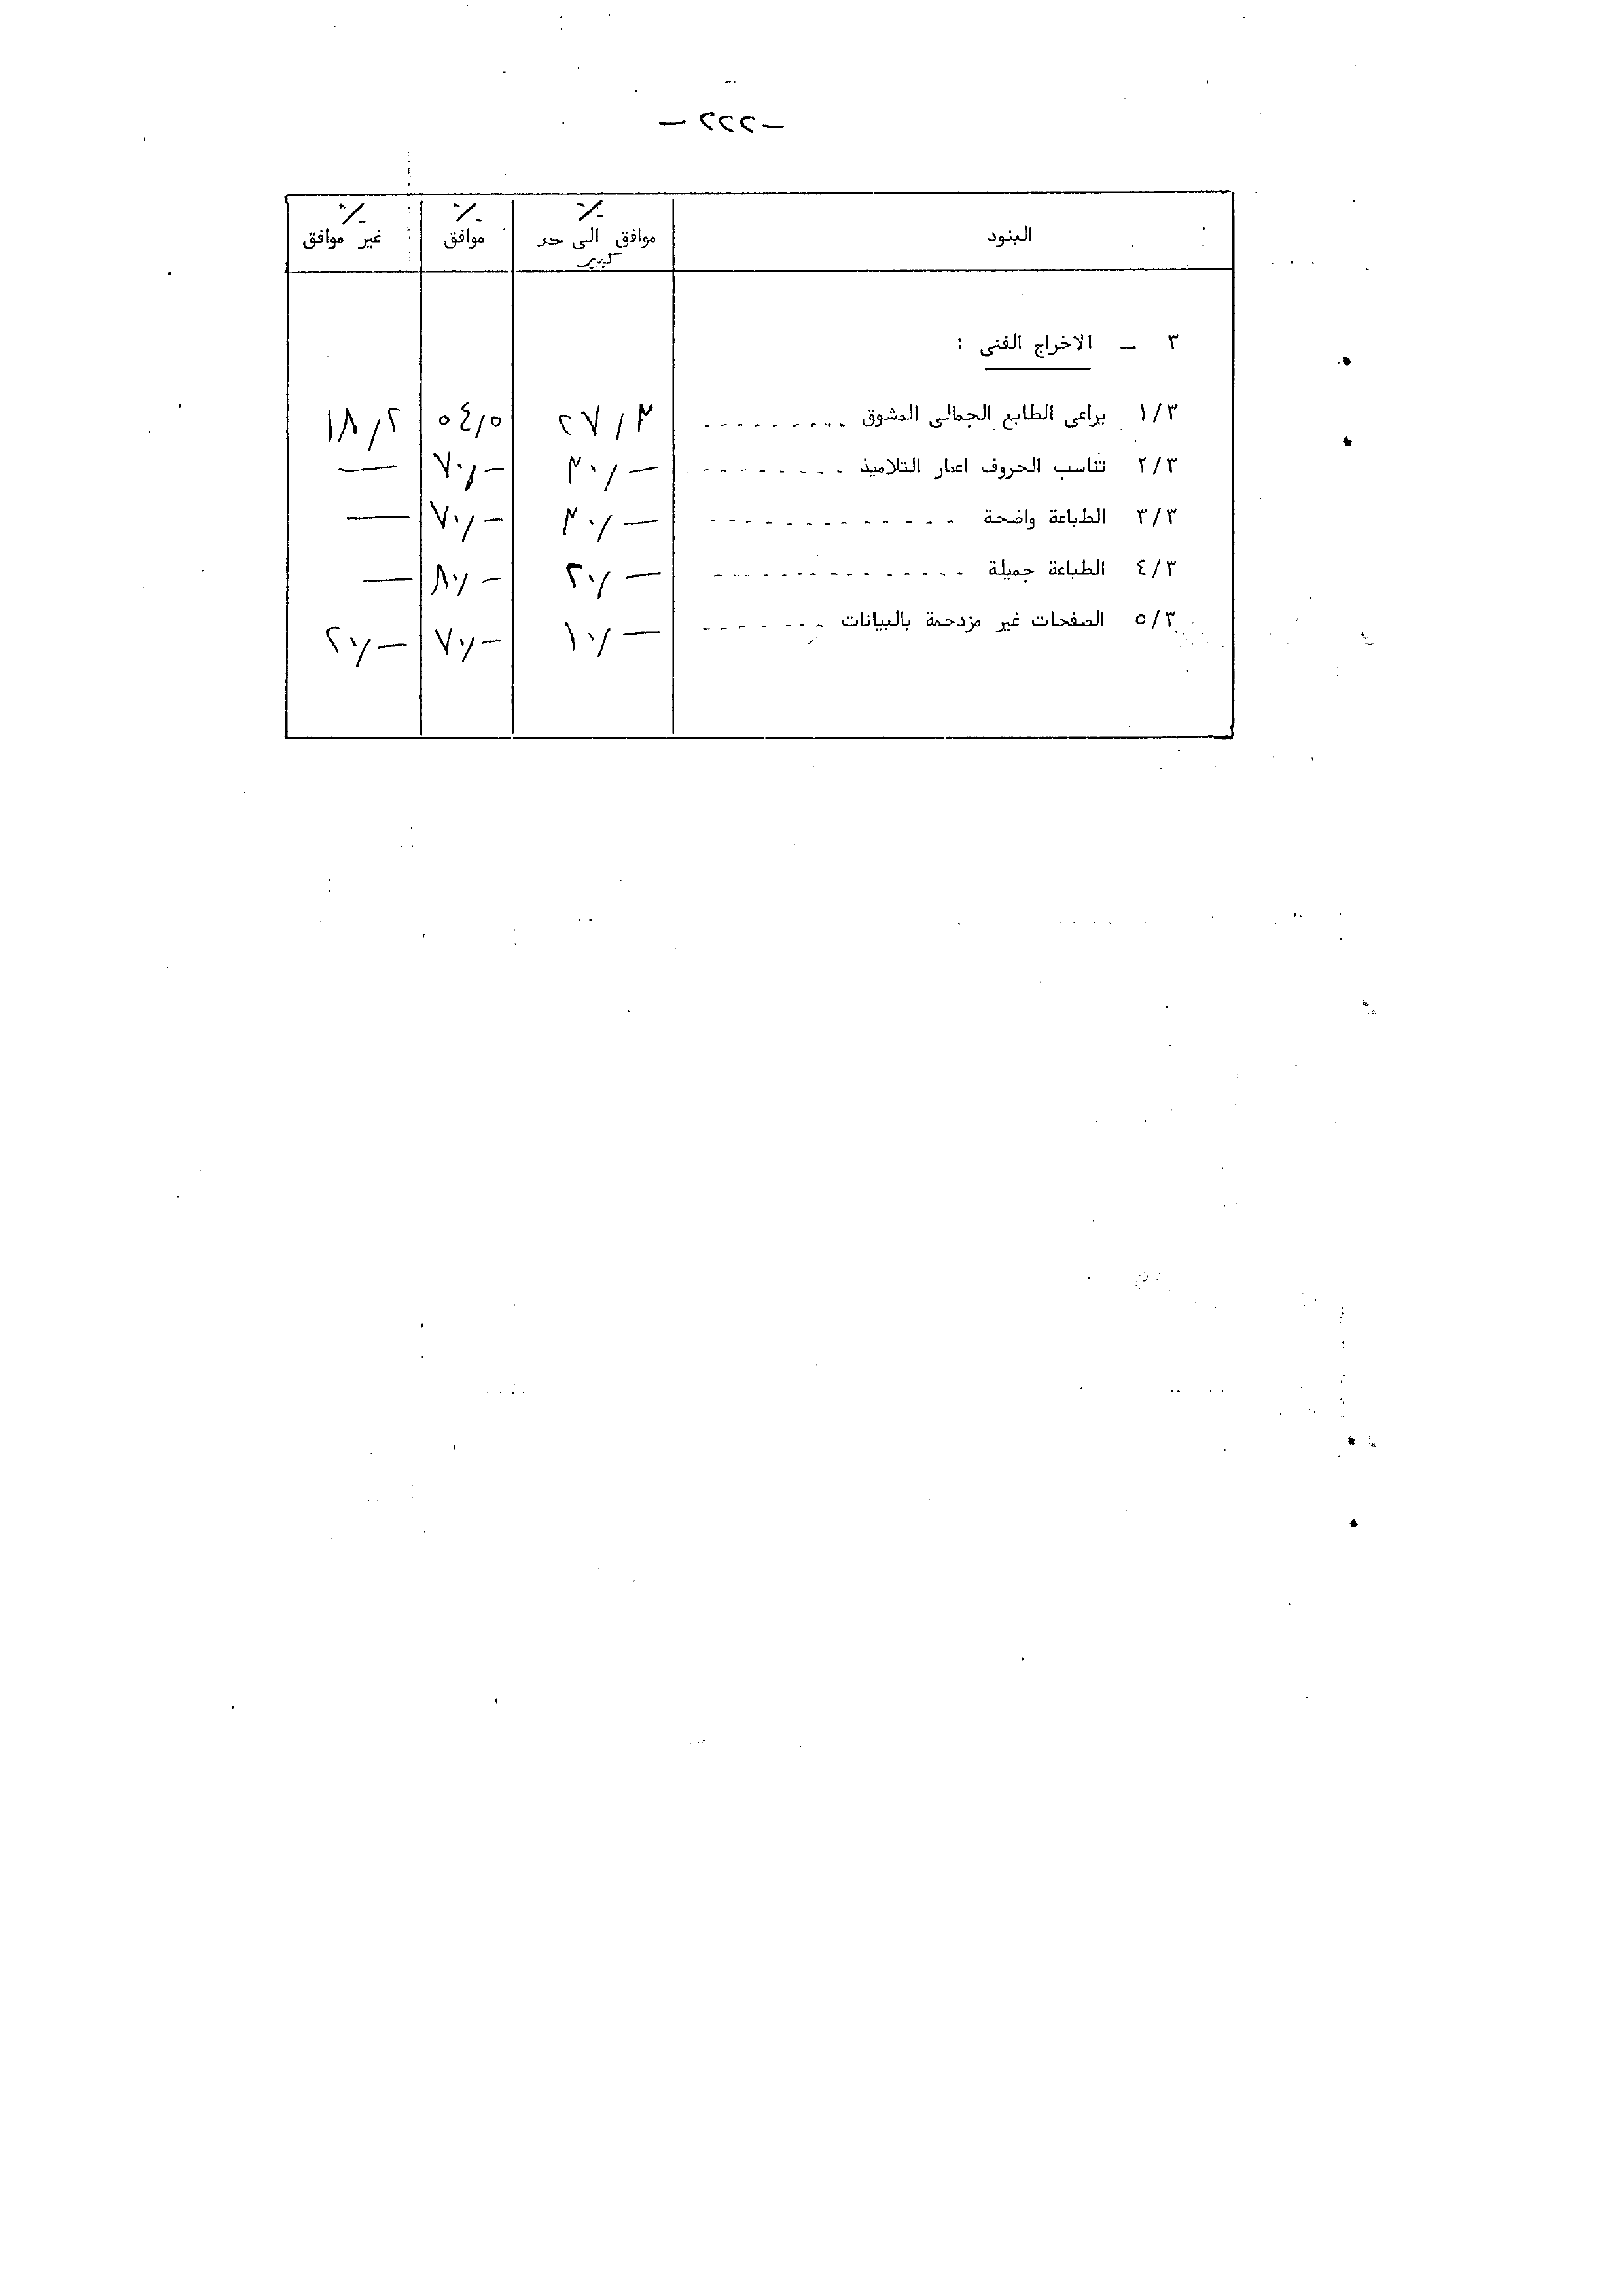 — ٢٢٢ —
البنود ٪ موافق الى حد كبير ٪ موافق ٪ غير موافق
٣ — الاخراج الفنى :
١/٣ يراعى الطابع الجمالى المشوق - - - - - - - - - ٢٧,٣ ٥٤,٥ ١٨,٢
٢/٣ تناسب الحروف اعمار التلاميذ - - - - - - - - ٣٠,— ٧٠,— —
٣/٣ الطباعة واضحة - - - - - - - - - - - - - ٣٠,— ٧٠,— —
٤/٣ الطباعة جميلة - - - - - - - - - - - - - ٢٠,— ٨٠,— —
٥/٣ الصفحات غير مزدحمة بالبيانات - - - - - - - ١٠,— ٧٠,— ٢٠,—